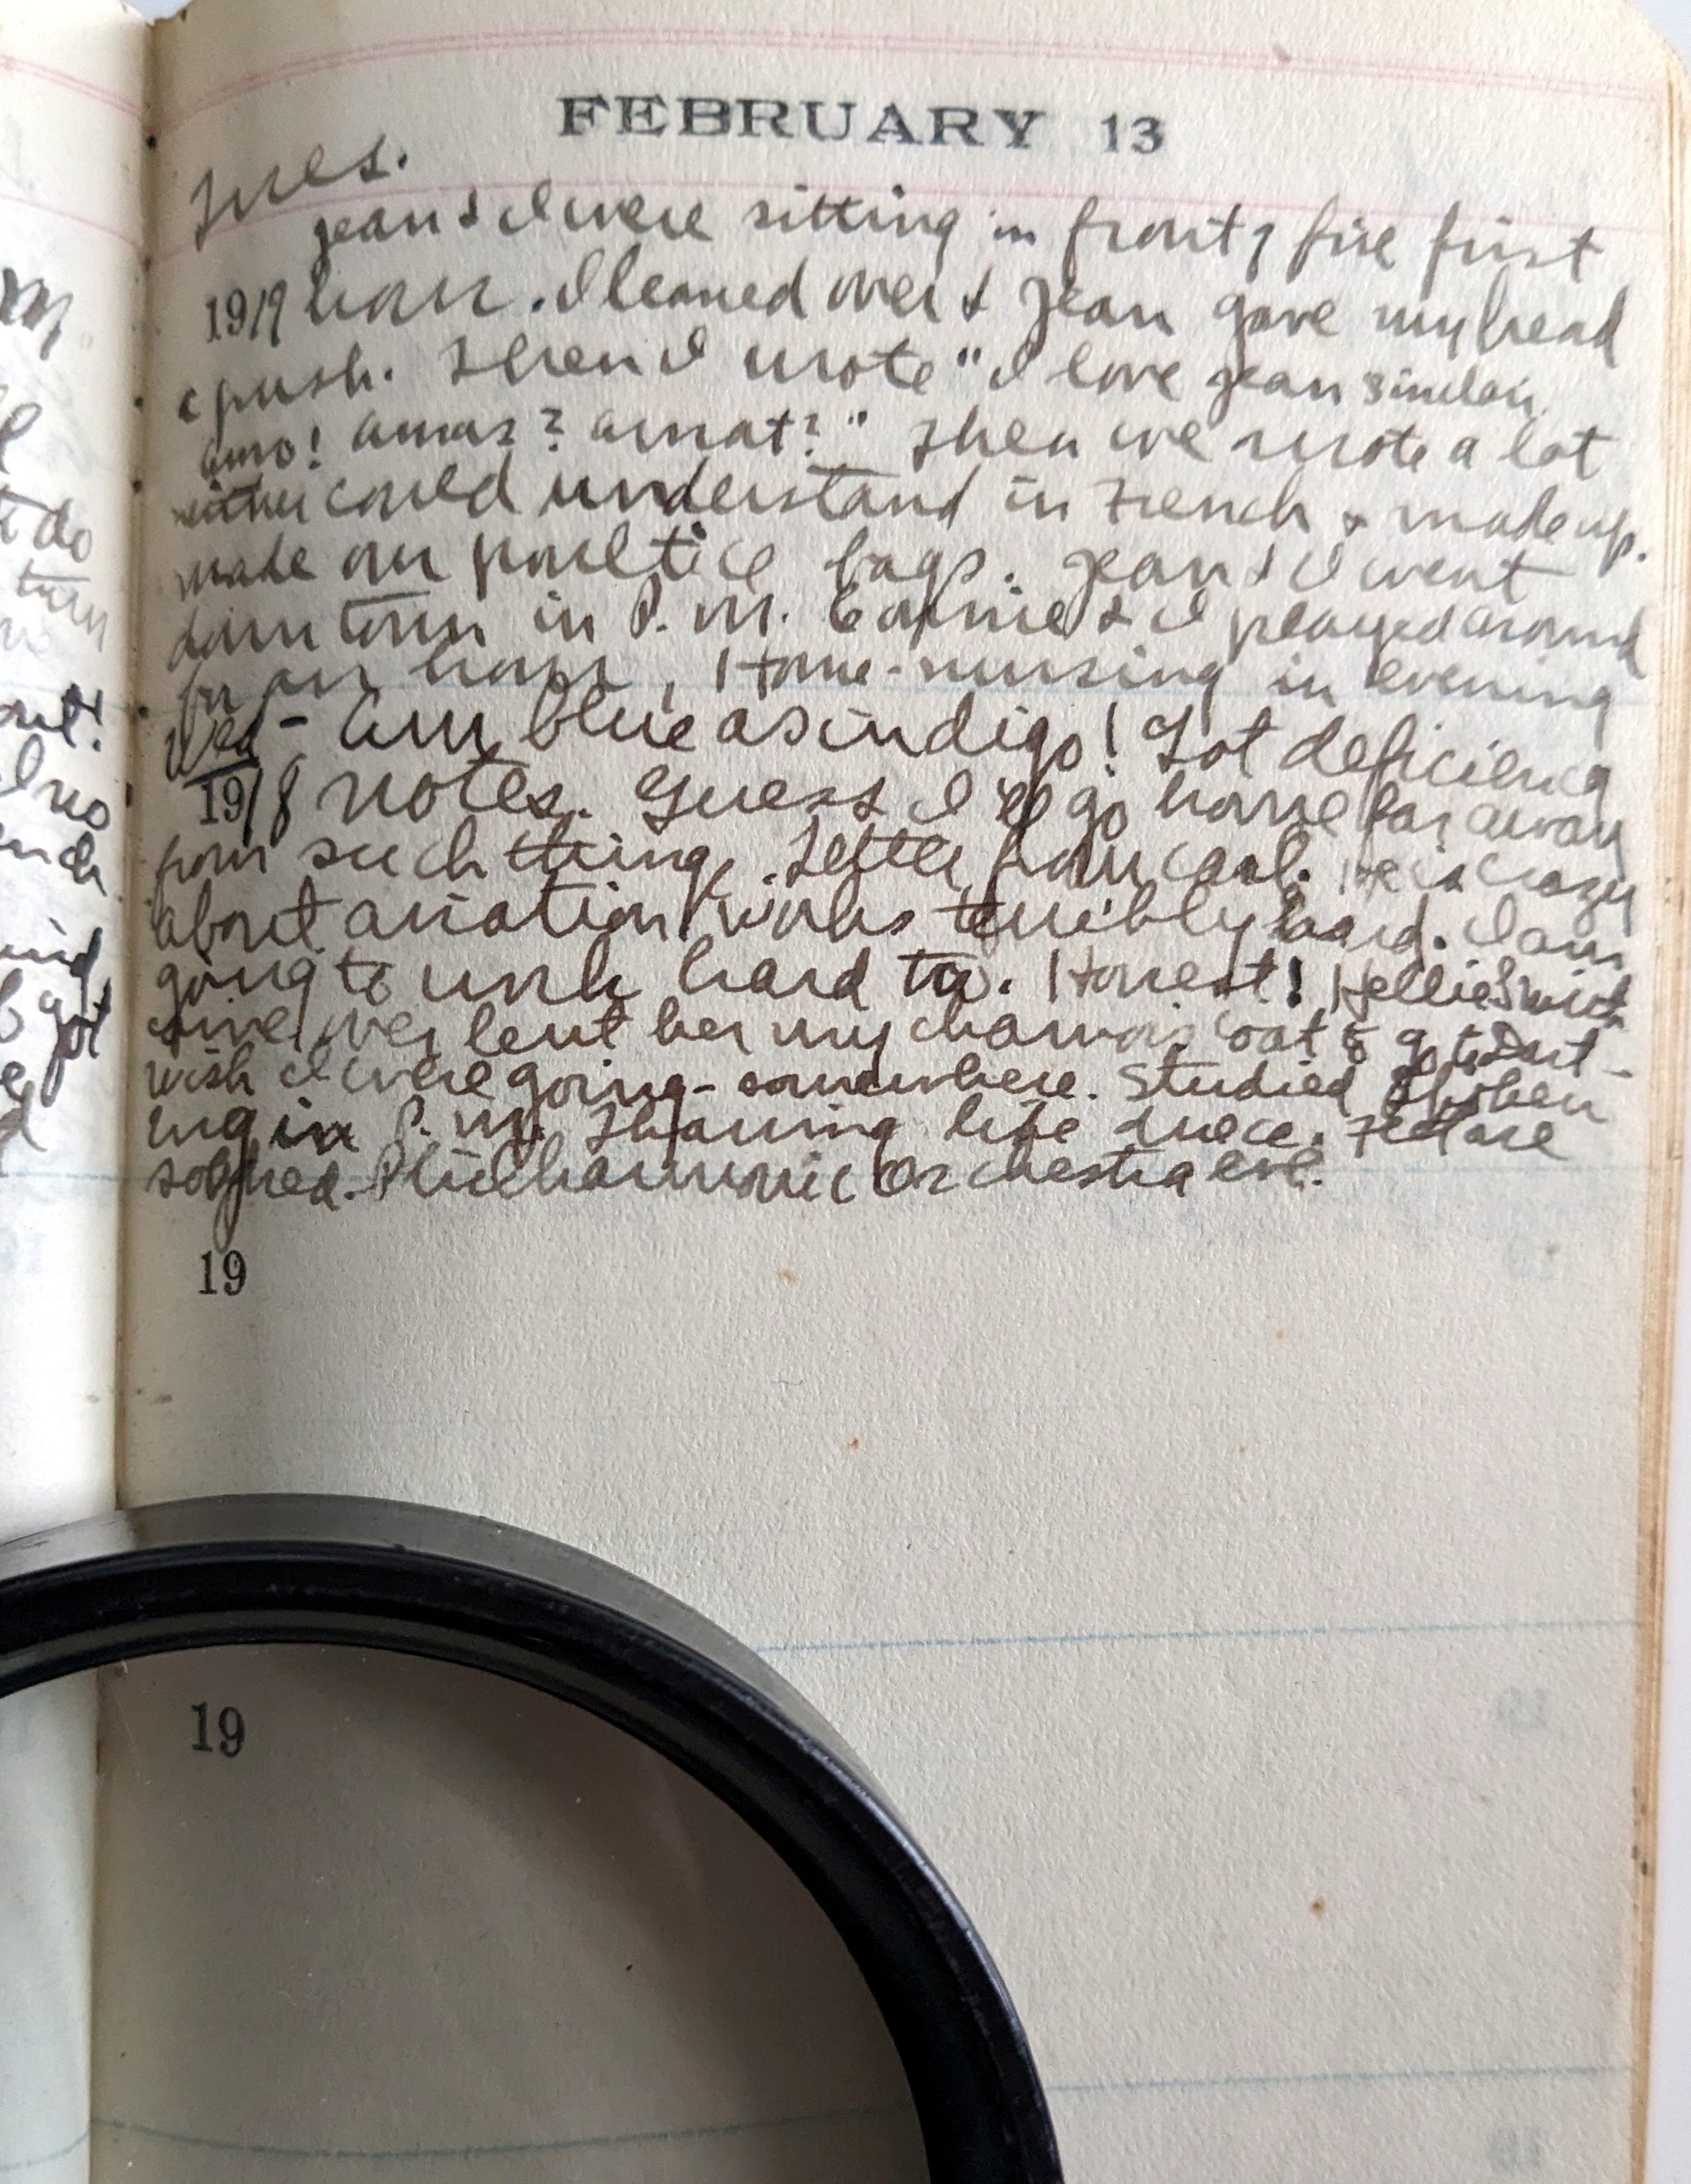 FEBRUARY 13
Tues.
Jean & I were sitting in front of fire first
1917 hour. I leaned over & Jean gave my head
a push. Then I wrote "I love Jean Sinclair
amo! amas? amat?" Then we wrote a lot
neither could understand in French & made up.
made our poultice bags. Jean & I went
down town in P.M. & I played around
for an hour. Home-nursing in evening
Wed - Am blue as indigo! Got deficiency
1918 notes. Guess I'll go home far away
from such things. Letter from Carl. He is crazy
about aviation, works terribly hard. I am
going to work hard too. Honest! Swift
came over lent her my chamois coat to go to Dart -
wish I were going - somewhere. Studied Spoken
Eng in P.M. Thawing like duece. Feet are
soaked. Philharmonic Orchestra eve.
19
19